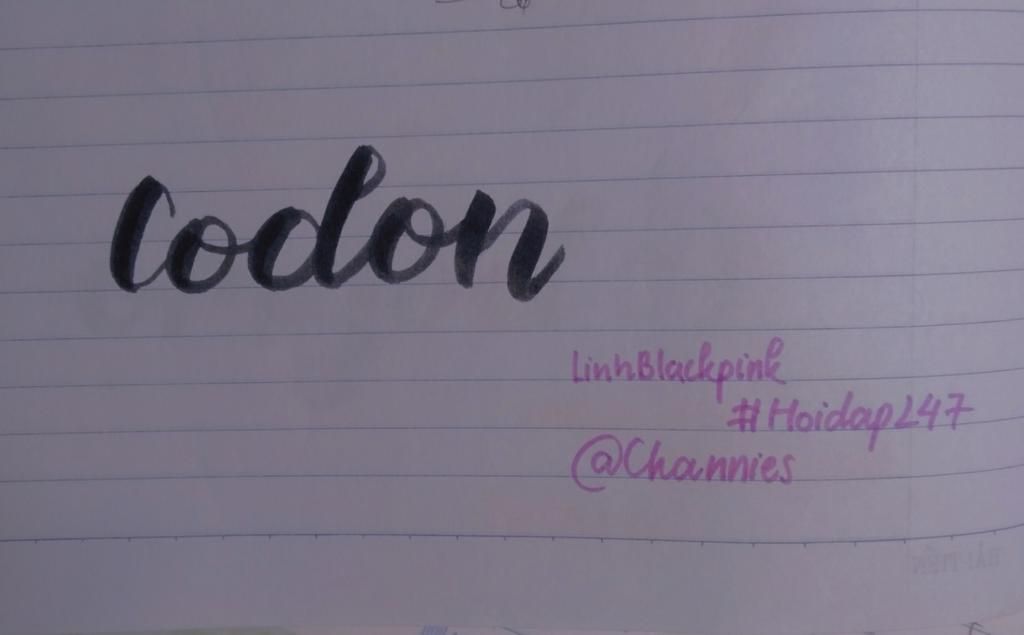 Codon
LinhBlackpink
#Hoidap247
@Channies